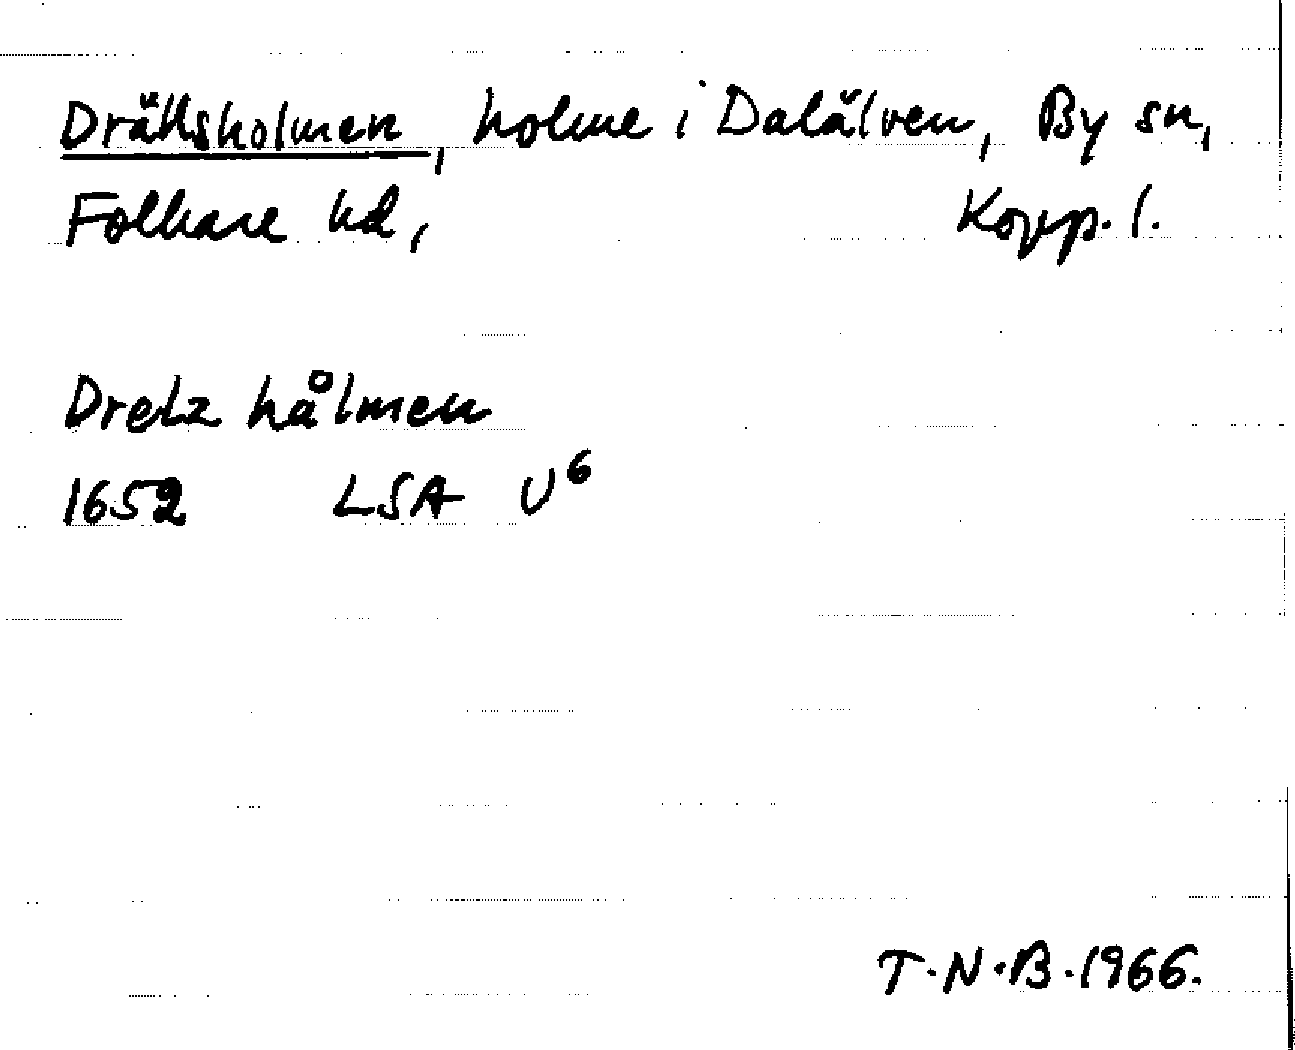 Drällsholmen, holme i Dalälven, By sn,
Folkare hd, Kopp. l.
Dretz hålmen
1652 LSA U⁶
T.N.B. 1966.